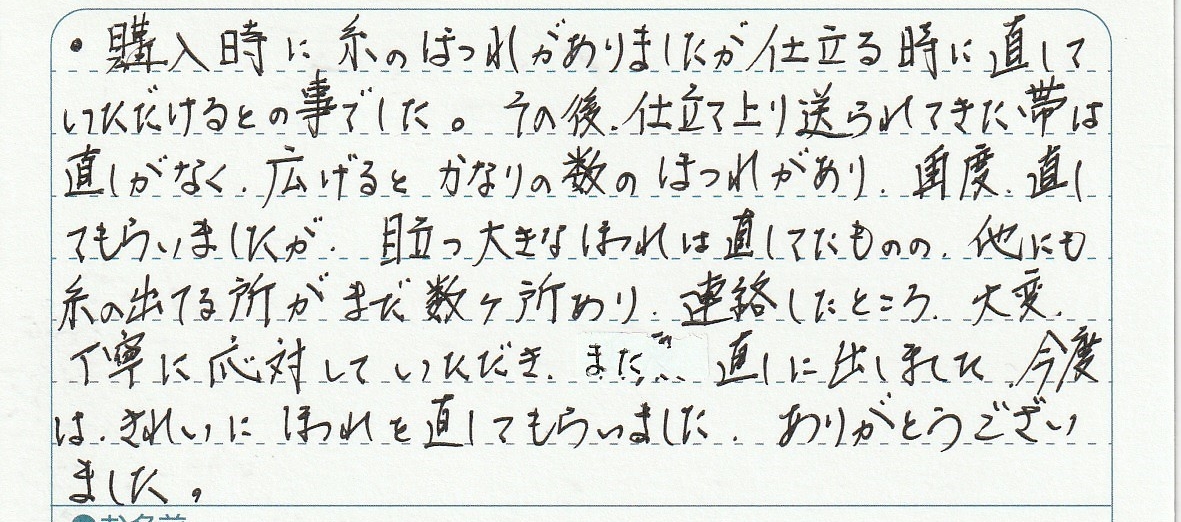 ・購入時に糸のほつれがありましたが仕立る時に直して
いただけるとの事でした。その後、仕立て上り送られてきた帯は
直しがなく、広げるとかなりの数のほつれがあり、再度、直し
てもらいましたが、目立つ大きなほつれは直してたものの、他にも
糸の出てる所がまだ数ヶ所あり、連絡したところ、大変、
丁寧に応対していただき、また、直しに出しました、今度
は、きれいにほつれを直してもらいました、ありがとうござい
ました。
お名前